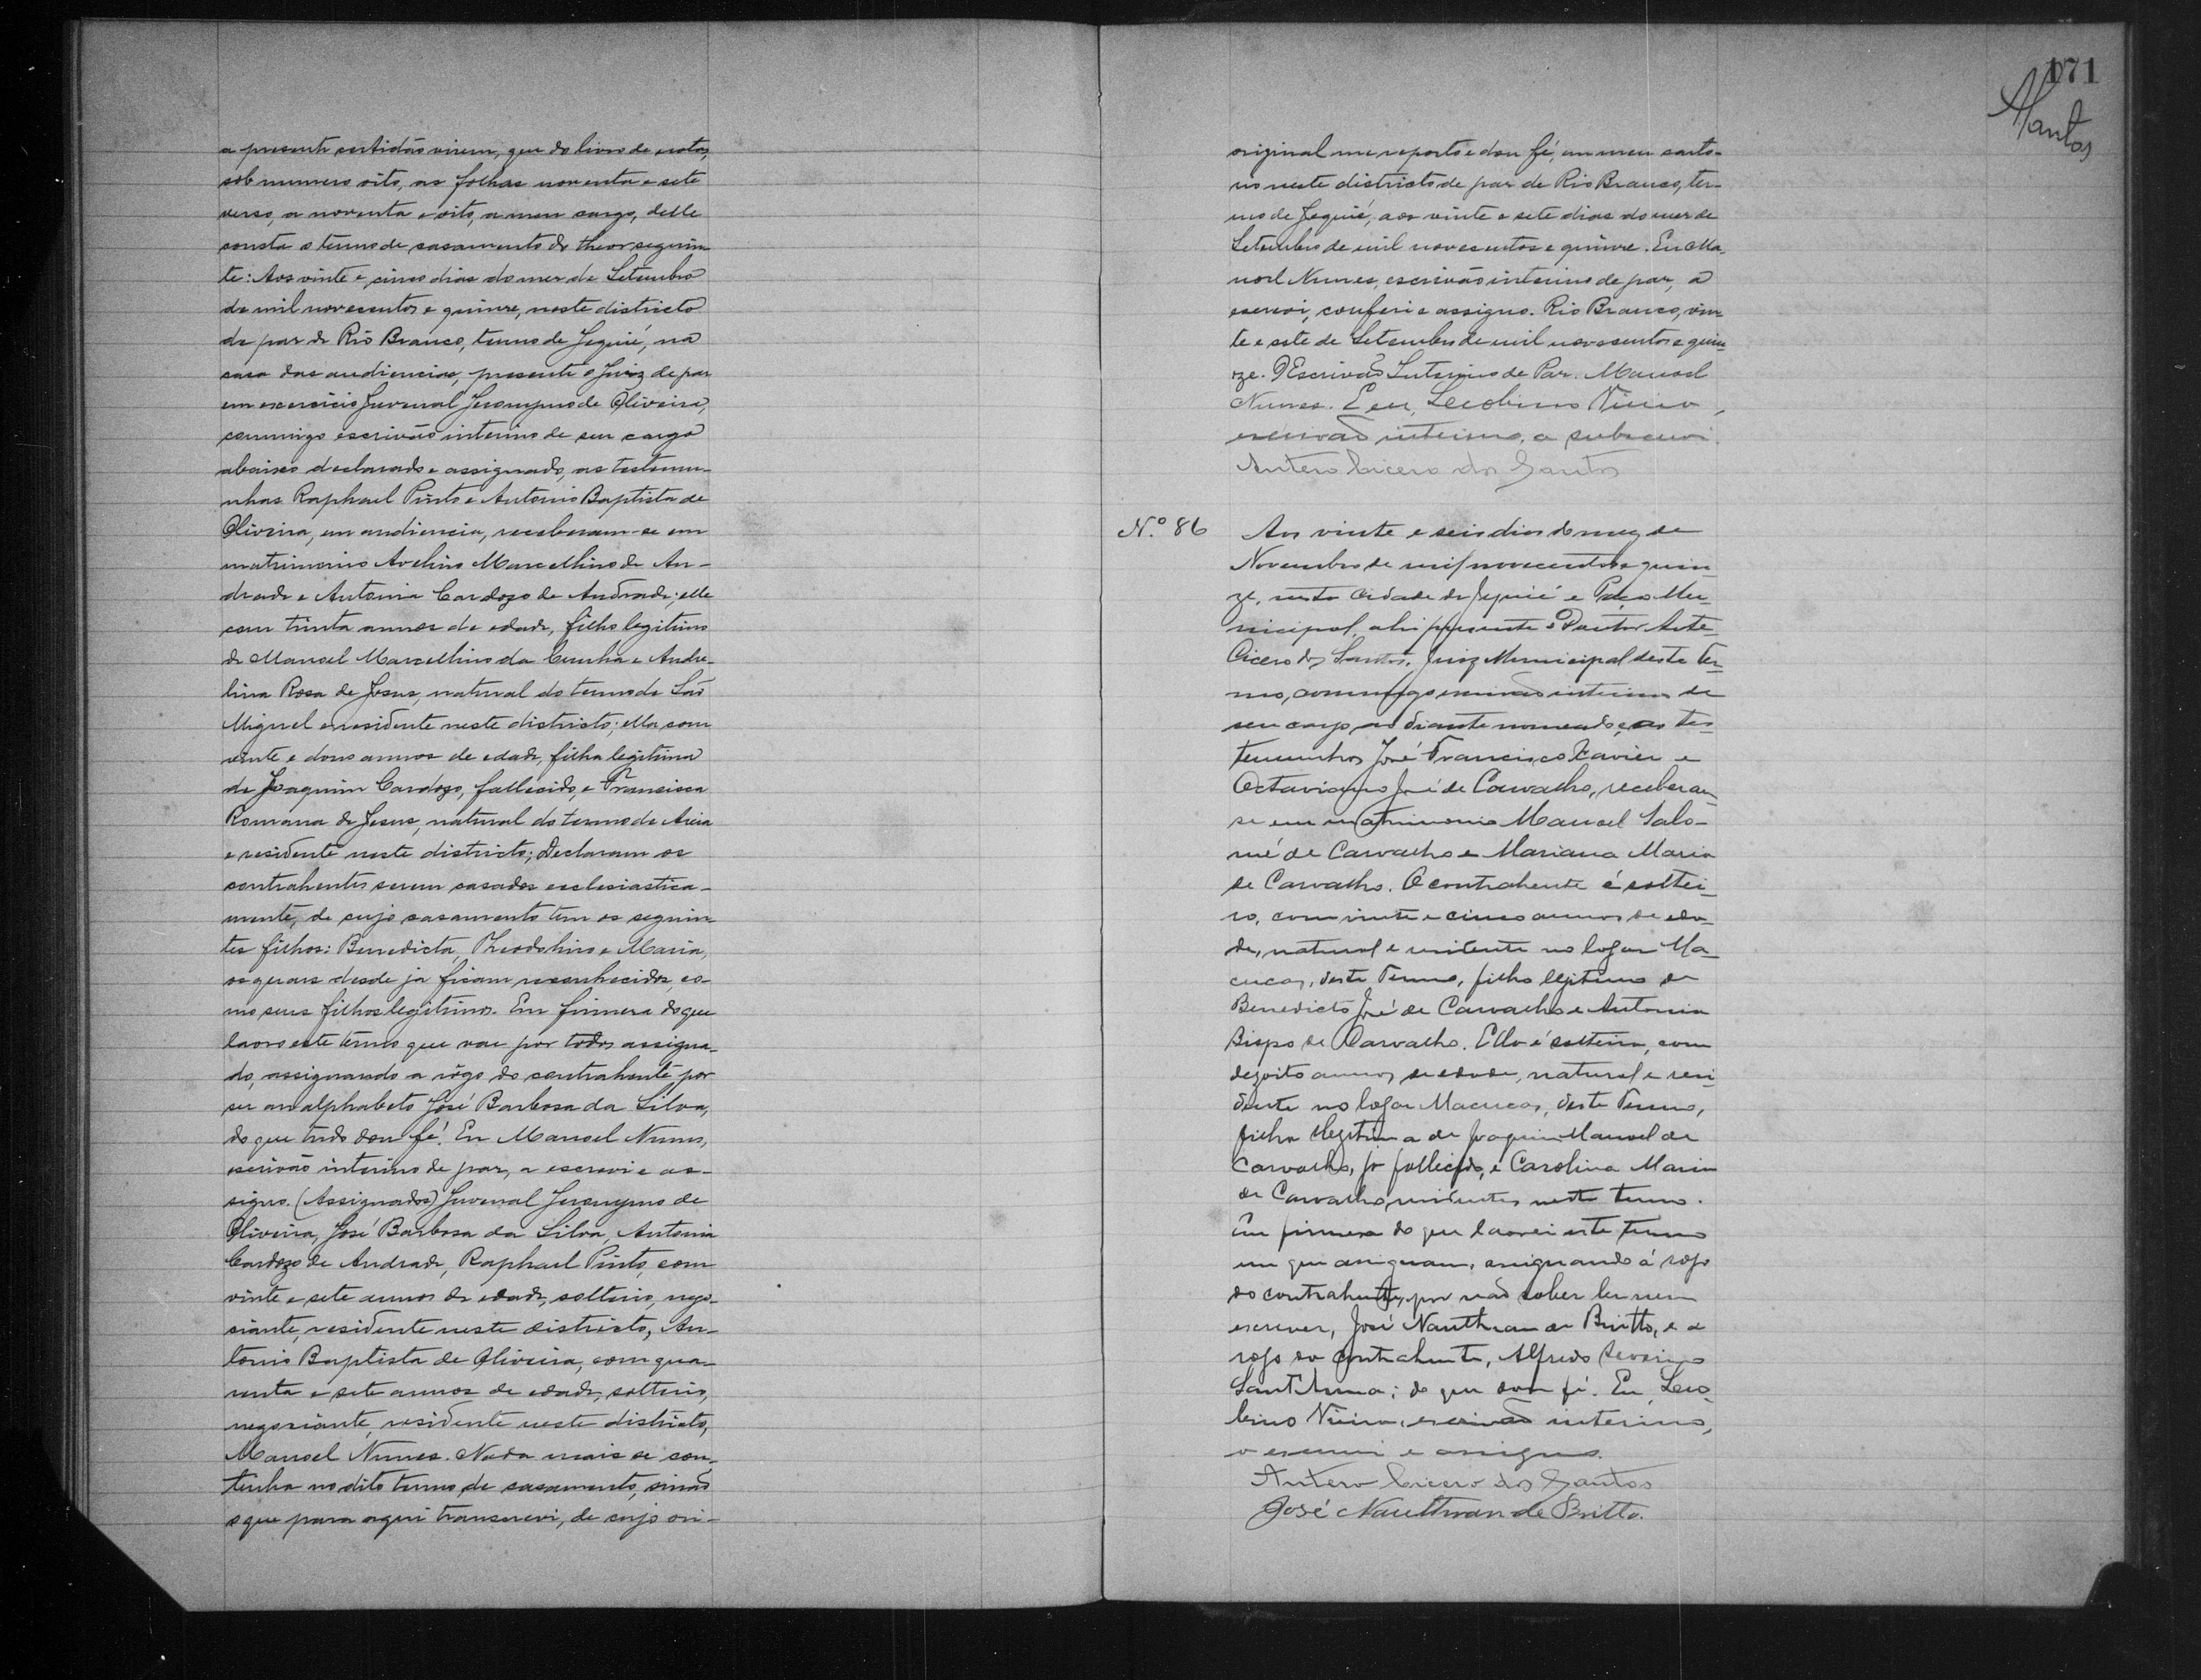 a presente certidão virem, que do livro de notas,
sob numero oito, as folhas noventa e sete
verso, a noventa e oito, a meu cargo, delle
consta o termo de casamento do theor seguin-
te: Aos vinte e cinco dias do mez de Setembro
de mil novecentos e quinze, neste districto
de paz de Rio Branco, termo de Jequié, na
casa das audiencias, presente o Juiz de paz
em exercicio Juvenal Jeronymo de Oliveira,
commigo escrivão interino de seu cargo
abaixo declarado e assignado, as testemu-
nhas Raphael Pinto e Antonio Baptista de
Oliveira, em audiencia, receberam-se em
matrimonio Avelino Marcellino de An-
drade e Antonia Cardozo de Andrade; elle
com trinta annos de edade, filho legitimo
de Manoel Marcellino da Cunha e Andre-
lina Rosa de Jesus, natural do termo de São
Miguel e residente neste districto; ella com
vinte e dous annos de edade, filha legitima
de Joaquim Cardozo, fallecido, e Francisca
Romana de Jesus, natural do termo de Areia
e residente neste districto; Declaram os
contrahentes serem casados ecclesiastica-
mente, de cujo casamento tem os seguin-
tes filhos: Benedicta, Theodolino e Maria,
os quaes desde ja ficam reconhecidos, co-
mo seus filhos legitimos. Em firmeza do que
lavro este termo que vae por todos assigna-
do, assignando a rôgo do contrahente por
ser analphabeto José Barbosa da Silva,
do que tudo dou fé. Eu Manoel Nunes,
escrivão interino de paz, a escrevi e as-
signo. (Assignados) Juvenal Jeronymo de
Oliveira, José Barbosa da Silva, Antonia
Cardozo de Andrade, Raphael Pinto, com
vinte e sete annos de edade, solteiro, nego-
ciante, residente neste districto, An-
tonio Baptista de Oliveira, com qua-
renta e sete annos de edade, solteiro,
negociante, residente neste districto,
Manoel Nunes. Nada mais se con-
tinha no dito termo de casamento, sinão
o que para aqui transcrevi, de cujo ori-
171
Santos
original me reporto e dou fé, em meu carto-
rio neste districto de paz de Rio Branco, ter-
mo de Jequié, aos vinte e sete dias do mez de
Setembro de mil novecentos e quinze. Eu Ma-
noel Nunes, escrivão interino de paz, a
escrevi, conferi e assigno. Rio Branco, vin-
te e sete de Setembro de mil novecentos e quin-
ze. O Escrivão Interino de Paz. Manoel
Nunes. Eu, Leolino Vieira,
escrivão interino, a subscrevi.
Antero Cicero dos Santos
Nº 86
Aos vinte e seis dias do mez de
Novembro de mil novecentos e quin-
ze, nesta cidade de Jequié e Paço Mu-
nicipal, ahi presente o Doutor Ante
Cicero dos Santos, Juiz Municipal deste ter-
mo, commigo escrivão interino de
seu cargo ao diante nomeado, e as tes-
temunhas José Francisco Xavier e
Octaviano José de Carvalho, receberam
se em matrimonio Manoel Salo-
mé de Carvalho e Mariana Maria
de Carvalho. O contrahente é soltei-
ro, com vinte e cinco annos de eda-
de, natural e residente no logar Ma-
cucas, deste Termo, filho legitimo de
Benedicto José de Carvalho e Antonia
Bispo de Carvalho. Ella é solteira, com
dezoito annos de edade, natural e resi-
dente no logar Macucas, deste Termo,
filha illegitima de Joaquim Manoel de
Carvalho, já fallecido, e Carolina Maria
de Carvalho, residentes neste termo.
Em firmeza do que lavrei este termo
em que assignam, assignando á rogo
do contrahente, por não saber ler nem
escrever, José Nauthman de Britto, e a
rogo da contrahente, Alfredo Severino
Sant'Anna; do que dou fé. Eu, Leo-
lino Vieira, escrivão interino,
o escrevi e assigno.
Antero Cicero dos Santos
José Nauthman de Britto.